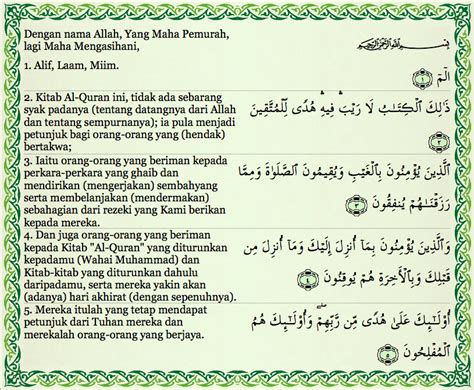 Dengan nama Allah, Yang Maha Pemurah,
lagi Maha Mengasihani,
بِسْمِ اللَّهِ الرَّحْمَٰنِ الرَّحِيمِ
1. Alif, Laam, Miim.
الٓمٓ ١
2. Kitab Al-Quran ini, tidak ada sebarang
syak padanya (tentang datangnya dari Allah
dan tentang sempurnanya); ia pula menjadi
petunjuk bagi orang-orang yang (hendak)
bertakwa;
ذَٰلِكَ ٱلْكِتَـٰبُ لَا رَيْبَ ۛ فِيهِ ۛ هُدًى لِّلْمُتَّقِينَ
٢
3. Iaitu orang-orang yang beriman kepada
perkara-perkara yang ghaib dan
mendirikan (mengerjakan) sembahyang
serta membelanjakan (mendermakan)
sebahagian dari rezeki yang Kami berikan
kepada mereka.
ٱلَّذِينَ يُؤْمِنُونَ بِٱلْغَيْبِ وَيُقِيمُونَ ٱلصَّلَوٰةَ وَمِمَّا
رَزَقْنَـٰهُمْ يُنفِقُونَ ٣
4. Dan juga orang-orang yang beriman
kepada Kitab "Al-Quran" yang diturunkan
kepadamu (Wahai Muhammad) dan
Kitab-kitab yang diturunkan dahulu
daripadamu, serta mereka yakin akan
(adanya) hari akhirat (dengan sepenuhnya).
وَٱلَّذِينَ يُؤْمِنُونَ بِمَآ أُنزِلَ إِلَيْكَ وَمَآ أُنزِلَ مِن
قَبْلِكَ وَبِٱلْـَٔاخِرَةِ هُمْ يُوقِنُونَ ٤
5. Mereka itulah yang tetap mendapat
petunjuk dari Tuhan mereka dan
merekalah orang-orang yang berjaya.
أُو۟لَـٰٓئِكَ عَلَىٰ هُدًى مِّن رَّبِّهِمْ ۖ وَأُو۟لَـٰٓئِكَ هُمُ
ٱلْمُفْلِحُونَ ٥